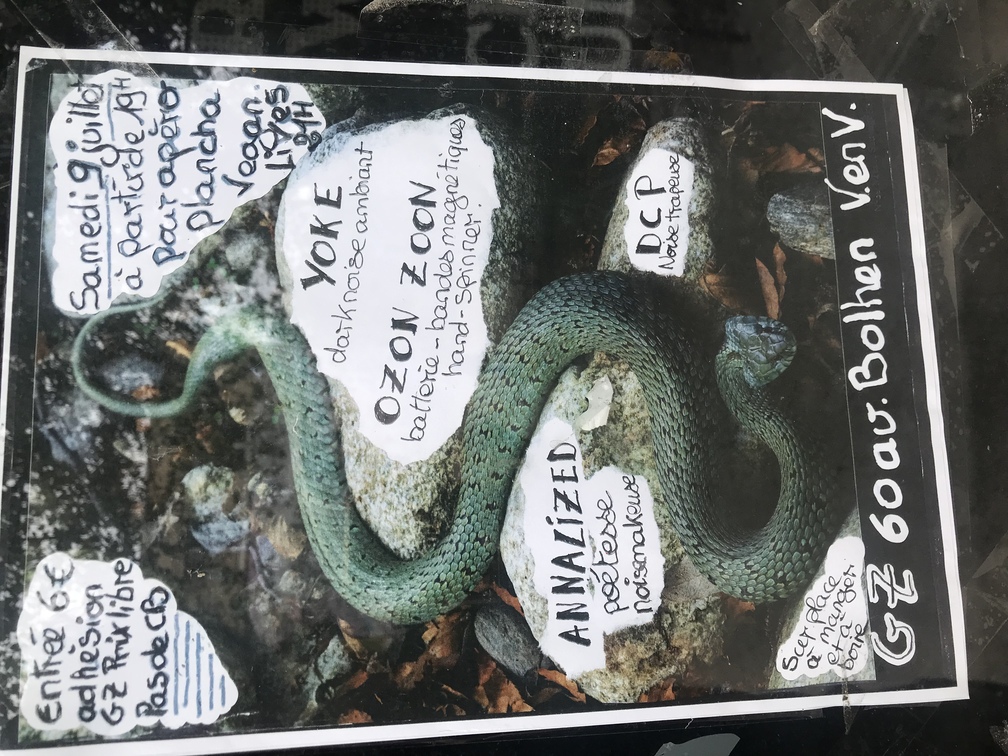 Entrée 6€
adhésion
GZ Prix libre
Pas de CB
Samedi 9 juillet
à partir de 19H
pour apéro
plancha
Vegan.
Lives
21H
YOKE
dark noise ambiant
OZON ZOON
batterie - bandes magnétiques
hand-spinner.
ANNALIZED
poétesse
noismakeuse
DCP
Noise trapeuse
Sur place
à manger
et à
boire
GZ 60 av. Bolhen V.en V.